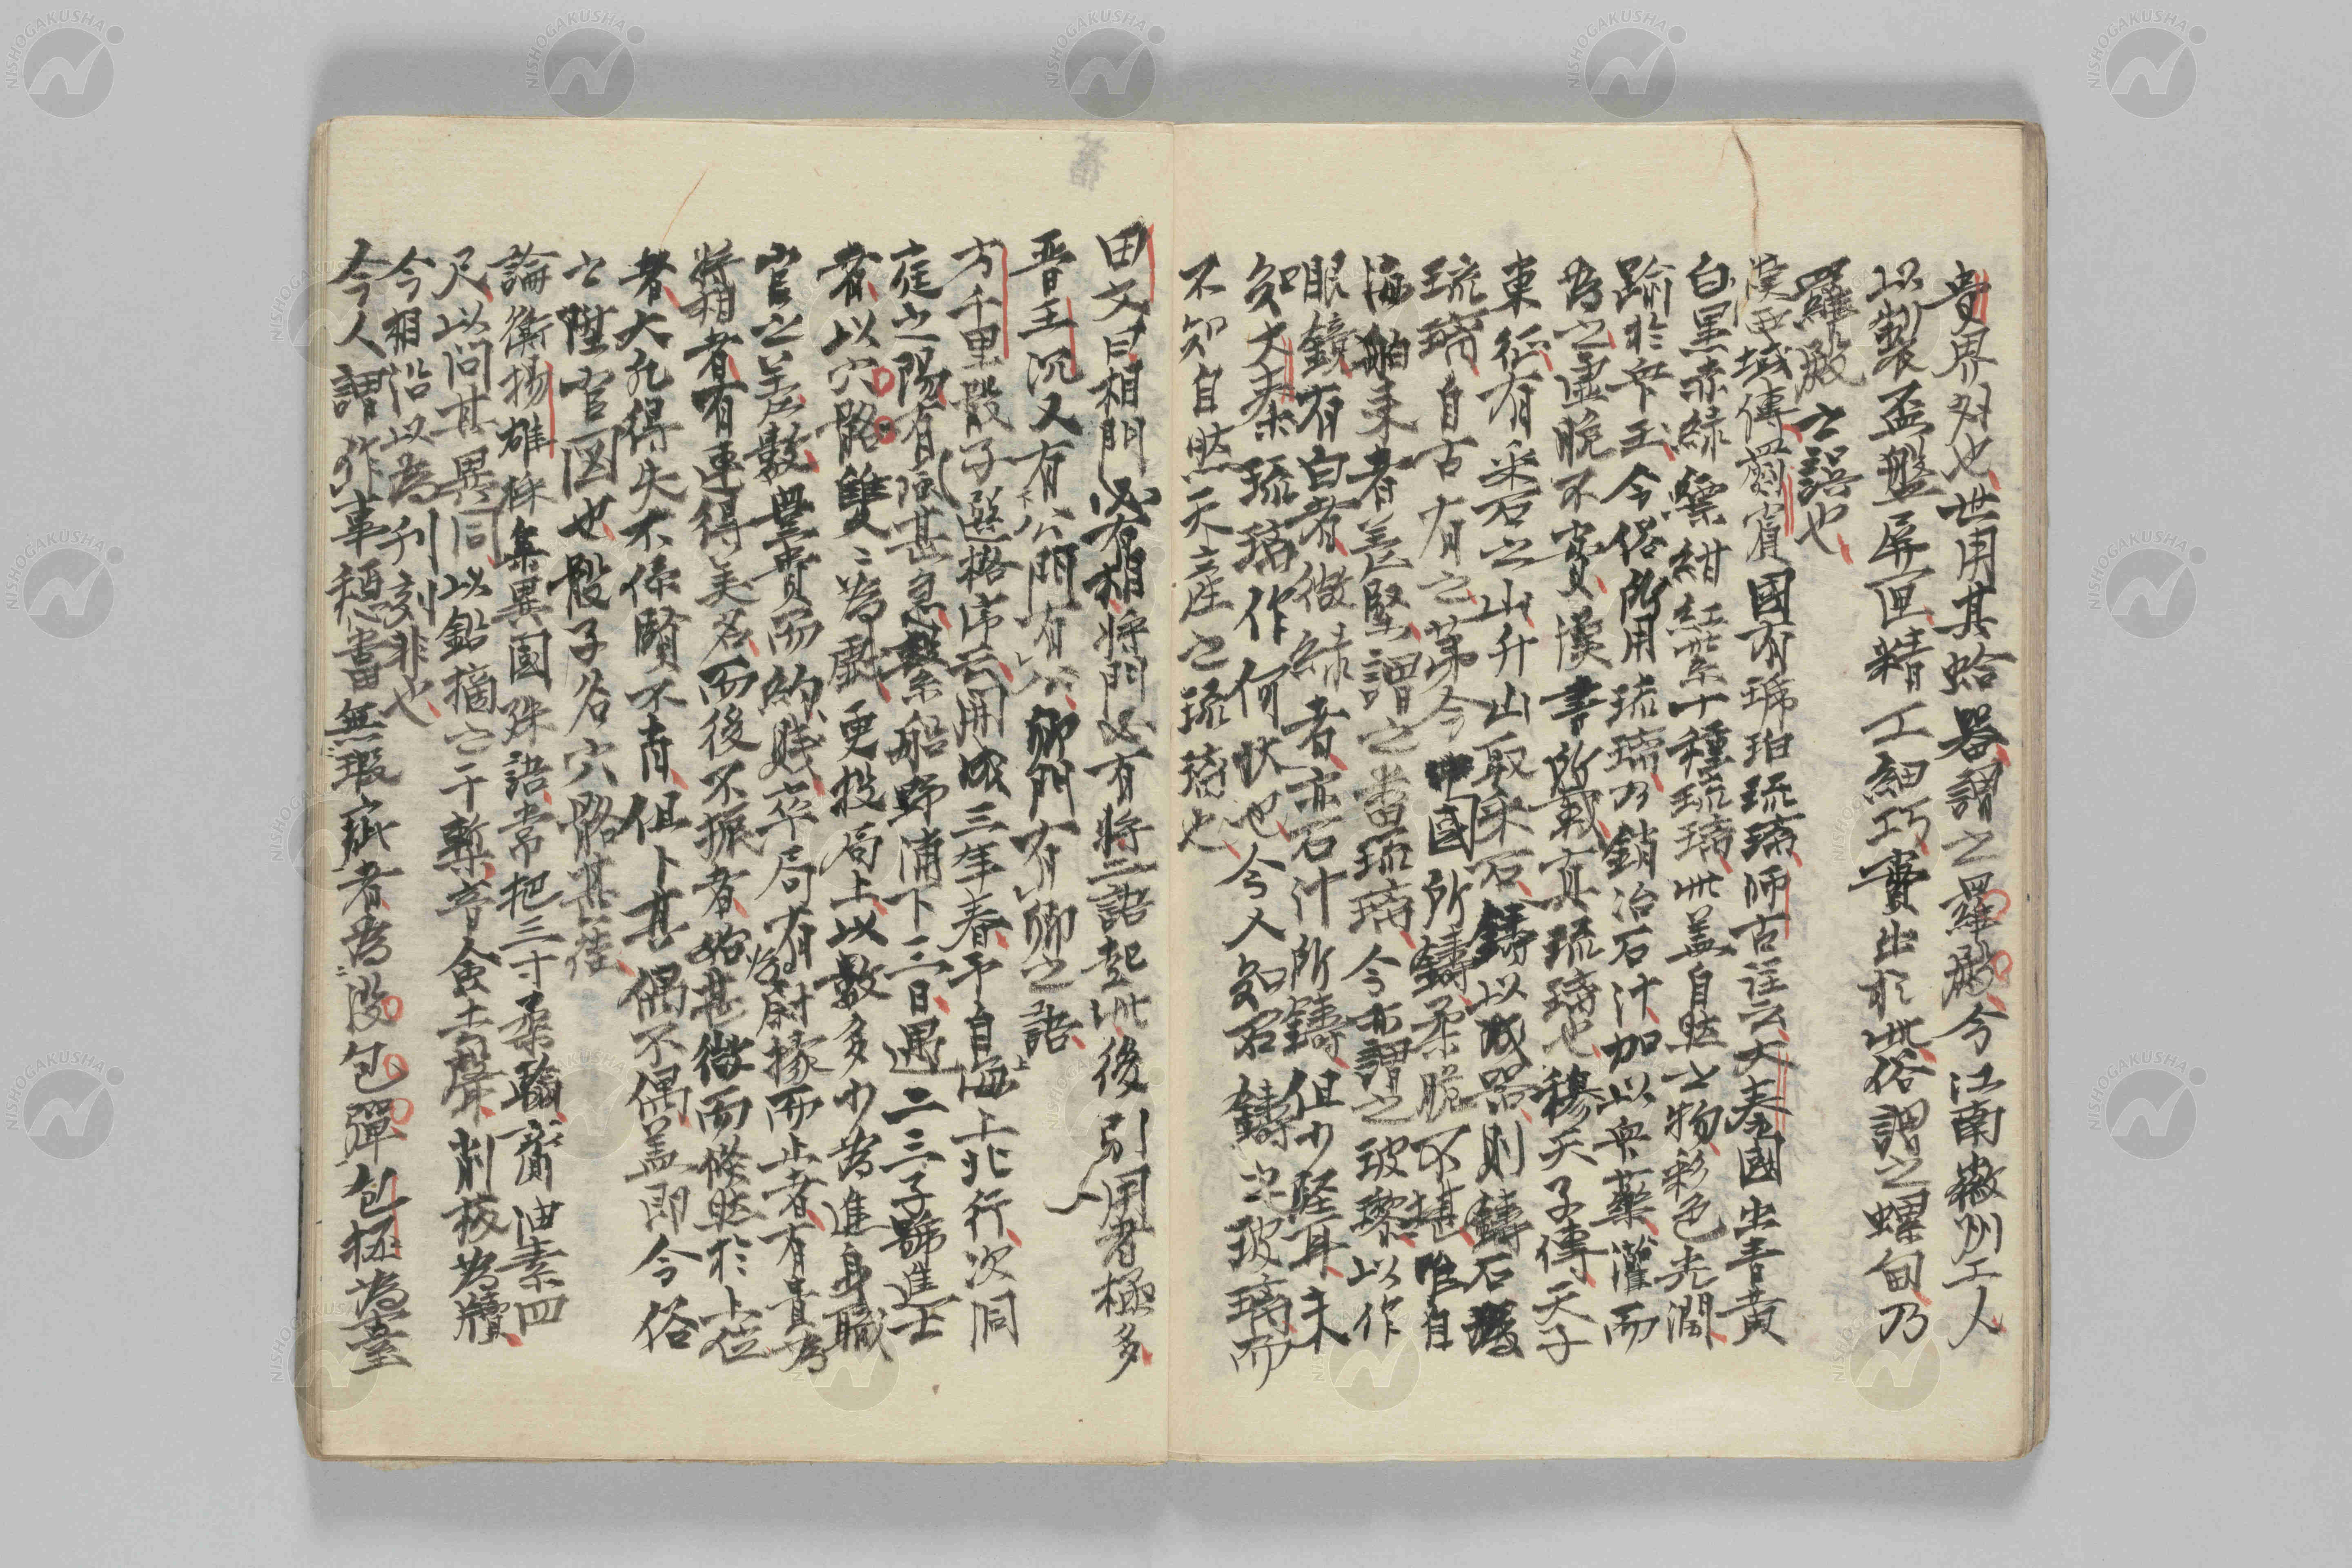 青界列也世用其蛤器謂之羅鈿今江南徽州工人
以製盃盤屏匣精工細巧實出於此俗謂之螺甸乃
羅殿之誤也
漢西域傳罽賓國有琥珀琉璃師古注云大秦國出青黃
白黑赤綠縹紺紅紫十種琉璃此蓋自然之物彩色光潤
踰於衆玉今俗所用琉璃乃銷冶石汁加以衆藥灌而
為之虛脆不實漢書所載真琉璃也穆天子傳天子
東征有采石之山升山取采石鑄以成器則鑄石為
琉璃自古有之第今中國所鑄柔脆不堪唯自
海舶來者差堅謂之番琉璃今亦謂之玻瓈以作
眼鏡有白者微綠者亦石汁所鑄但少輕耳未
知大秦琉璃作何狀也今人知有鑄之玻璃而
不知自然天産之琉璃也
田文曰相門必有相將門必有將二語起此後引用者極多
晉王沉又有公門有公卿門有卿之語
方千里骰子選格序云開成三年春予自海上北行次洞
庭之陽有風甚急繫船野浦下三日遇二三子號進士
者以穴骼雙雙為戲更投局上以數多少為進身職
官之差數豊貴而約賤卒局有為尉掾而止者有貴為
將相者有連得美名而後不振者始甚微而倐然於上位
者大凡得失不係賢不肖但卜其偶不偶蓋即今俗
之陞官図也骰子名穴骼甚佳
論衡揚雄採集異國殊語常把三寸柔翰齎油素四
尺以問其異同以鉛摘之于槧音僉去聲削板為牘
今相沿以為刊刻非也
今人謂作事穏當無瑕疵者為没包彈包拯為臺